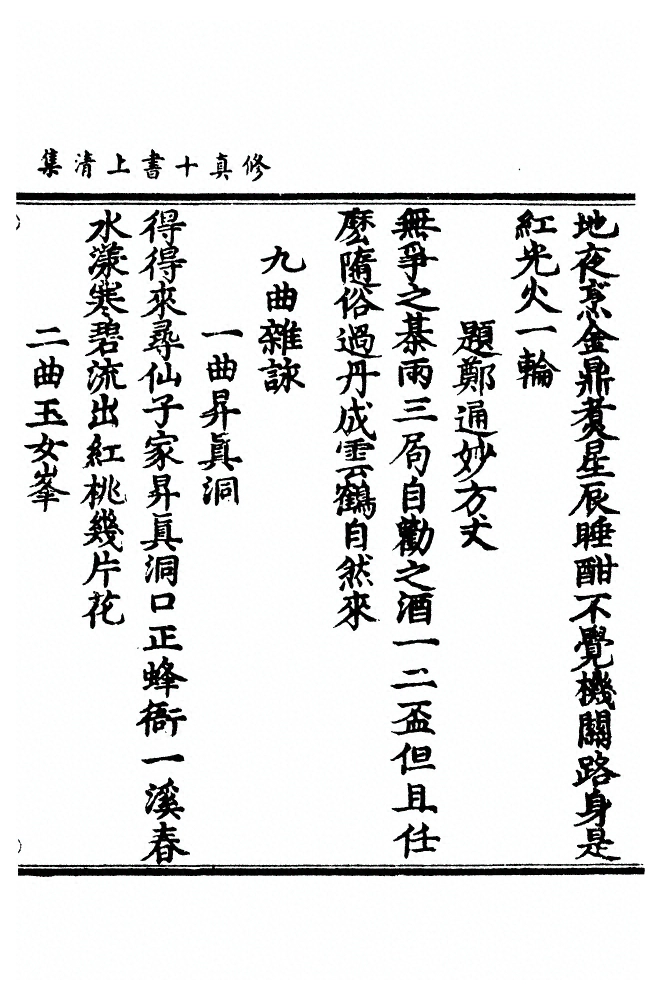 修真十書上清集
地夜烹金鼎煑星辰睡酣不覺機關路身是
紅光火一輪
題鄭通妙方丈
無爭之棊兩三局自勸之酒一二盃但且任
麽隨俗過丹成雲鶴自然來
九曲雜詠
一曲昇眞洞
得得來尋仙子家昇眞洞口正蜂衙一溪春
水漾寒碧流出紅桃幾片花
二曲玉女峯